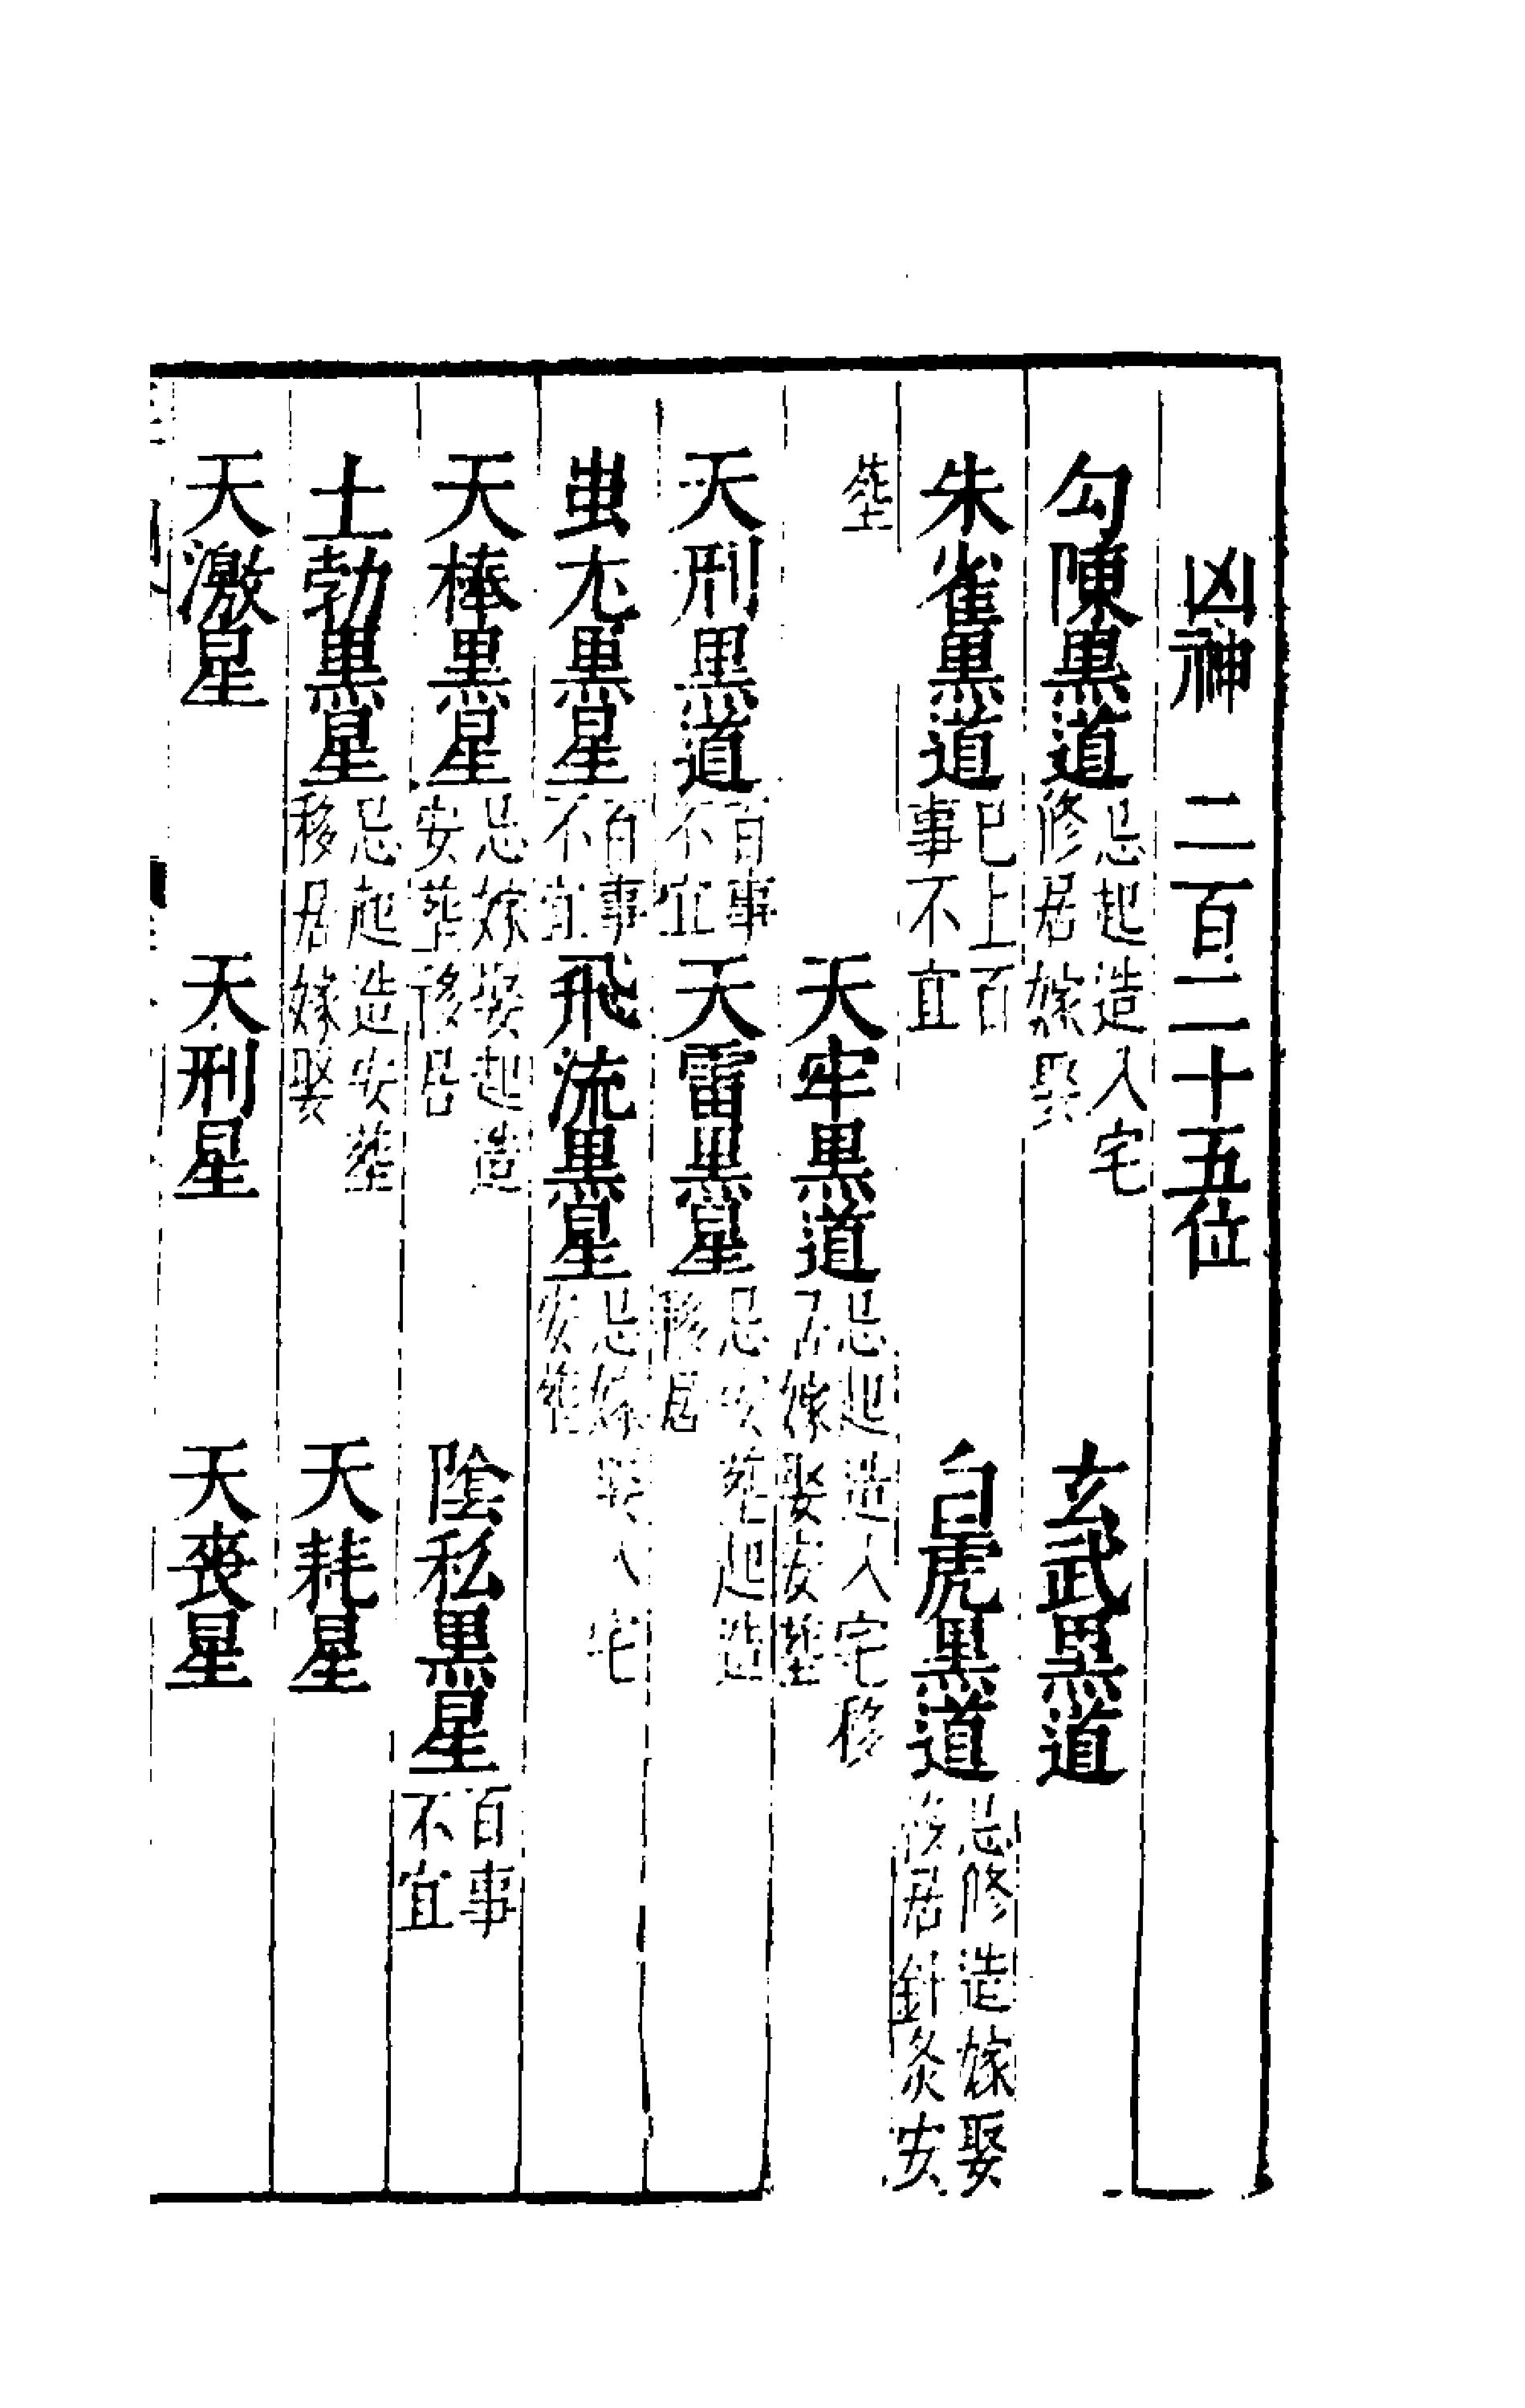 凶神　二百二十五位
勾陳黑道忌起造入宅修居嫁娶　玄武黑道
朱雀黑道已上百事不宜　白虎黑道忌修造嫁娶移居針灸安
塟　天牢黑道忌起造入宅移居嫁娶安塟
天刑黑道百事不宜　天雷黑星忌安塟起造移居
蚩尤黑星百事不宜　飛流黑星忌嫁娶入宅安
天棒黑星忌嫁娶起造安葬移居　陰私黑星百事不宜
土勃黑星忌起造安塟移居嫁娶　天耗星
天激星　天刑星　天喪星